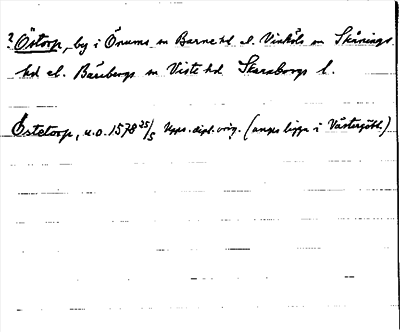 ? Östorp, by i Önums sn Barne hd el. Vinköls sn Skånings
hd el. Bärebergs sn Viste hd. Skaraborgs l.
Östetorp, u.o. 1578 25/5 Upps. dipl. orig. (anges ligga i Västergötl.)